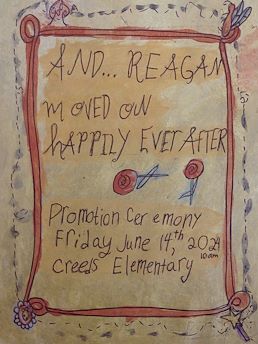 AND... REAGAN
moved on
happily EVER AFTER
Promotion Cer emony
Friday June 14th, 2024
10am
Creeds Elementary